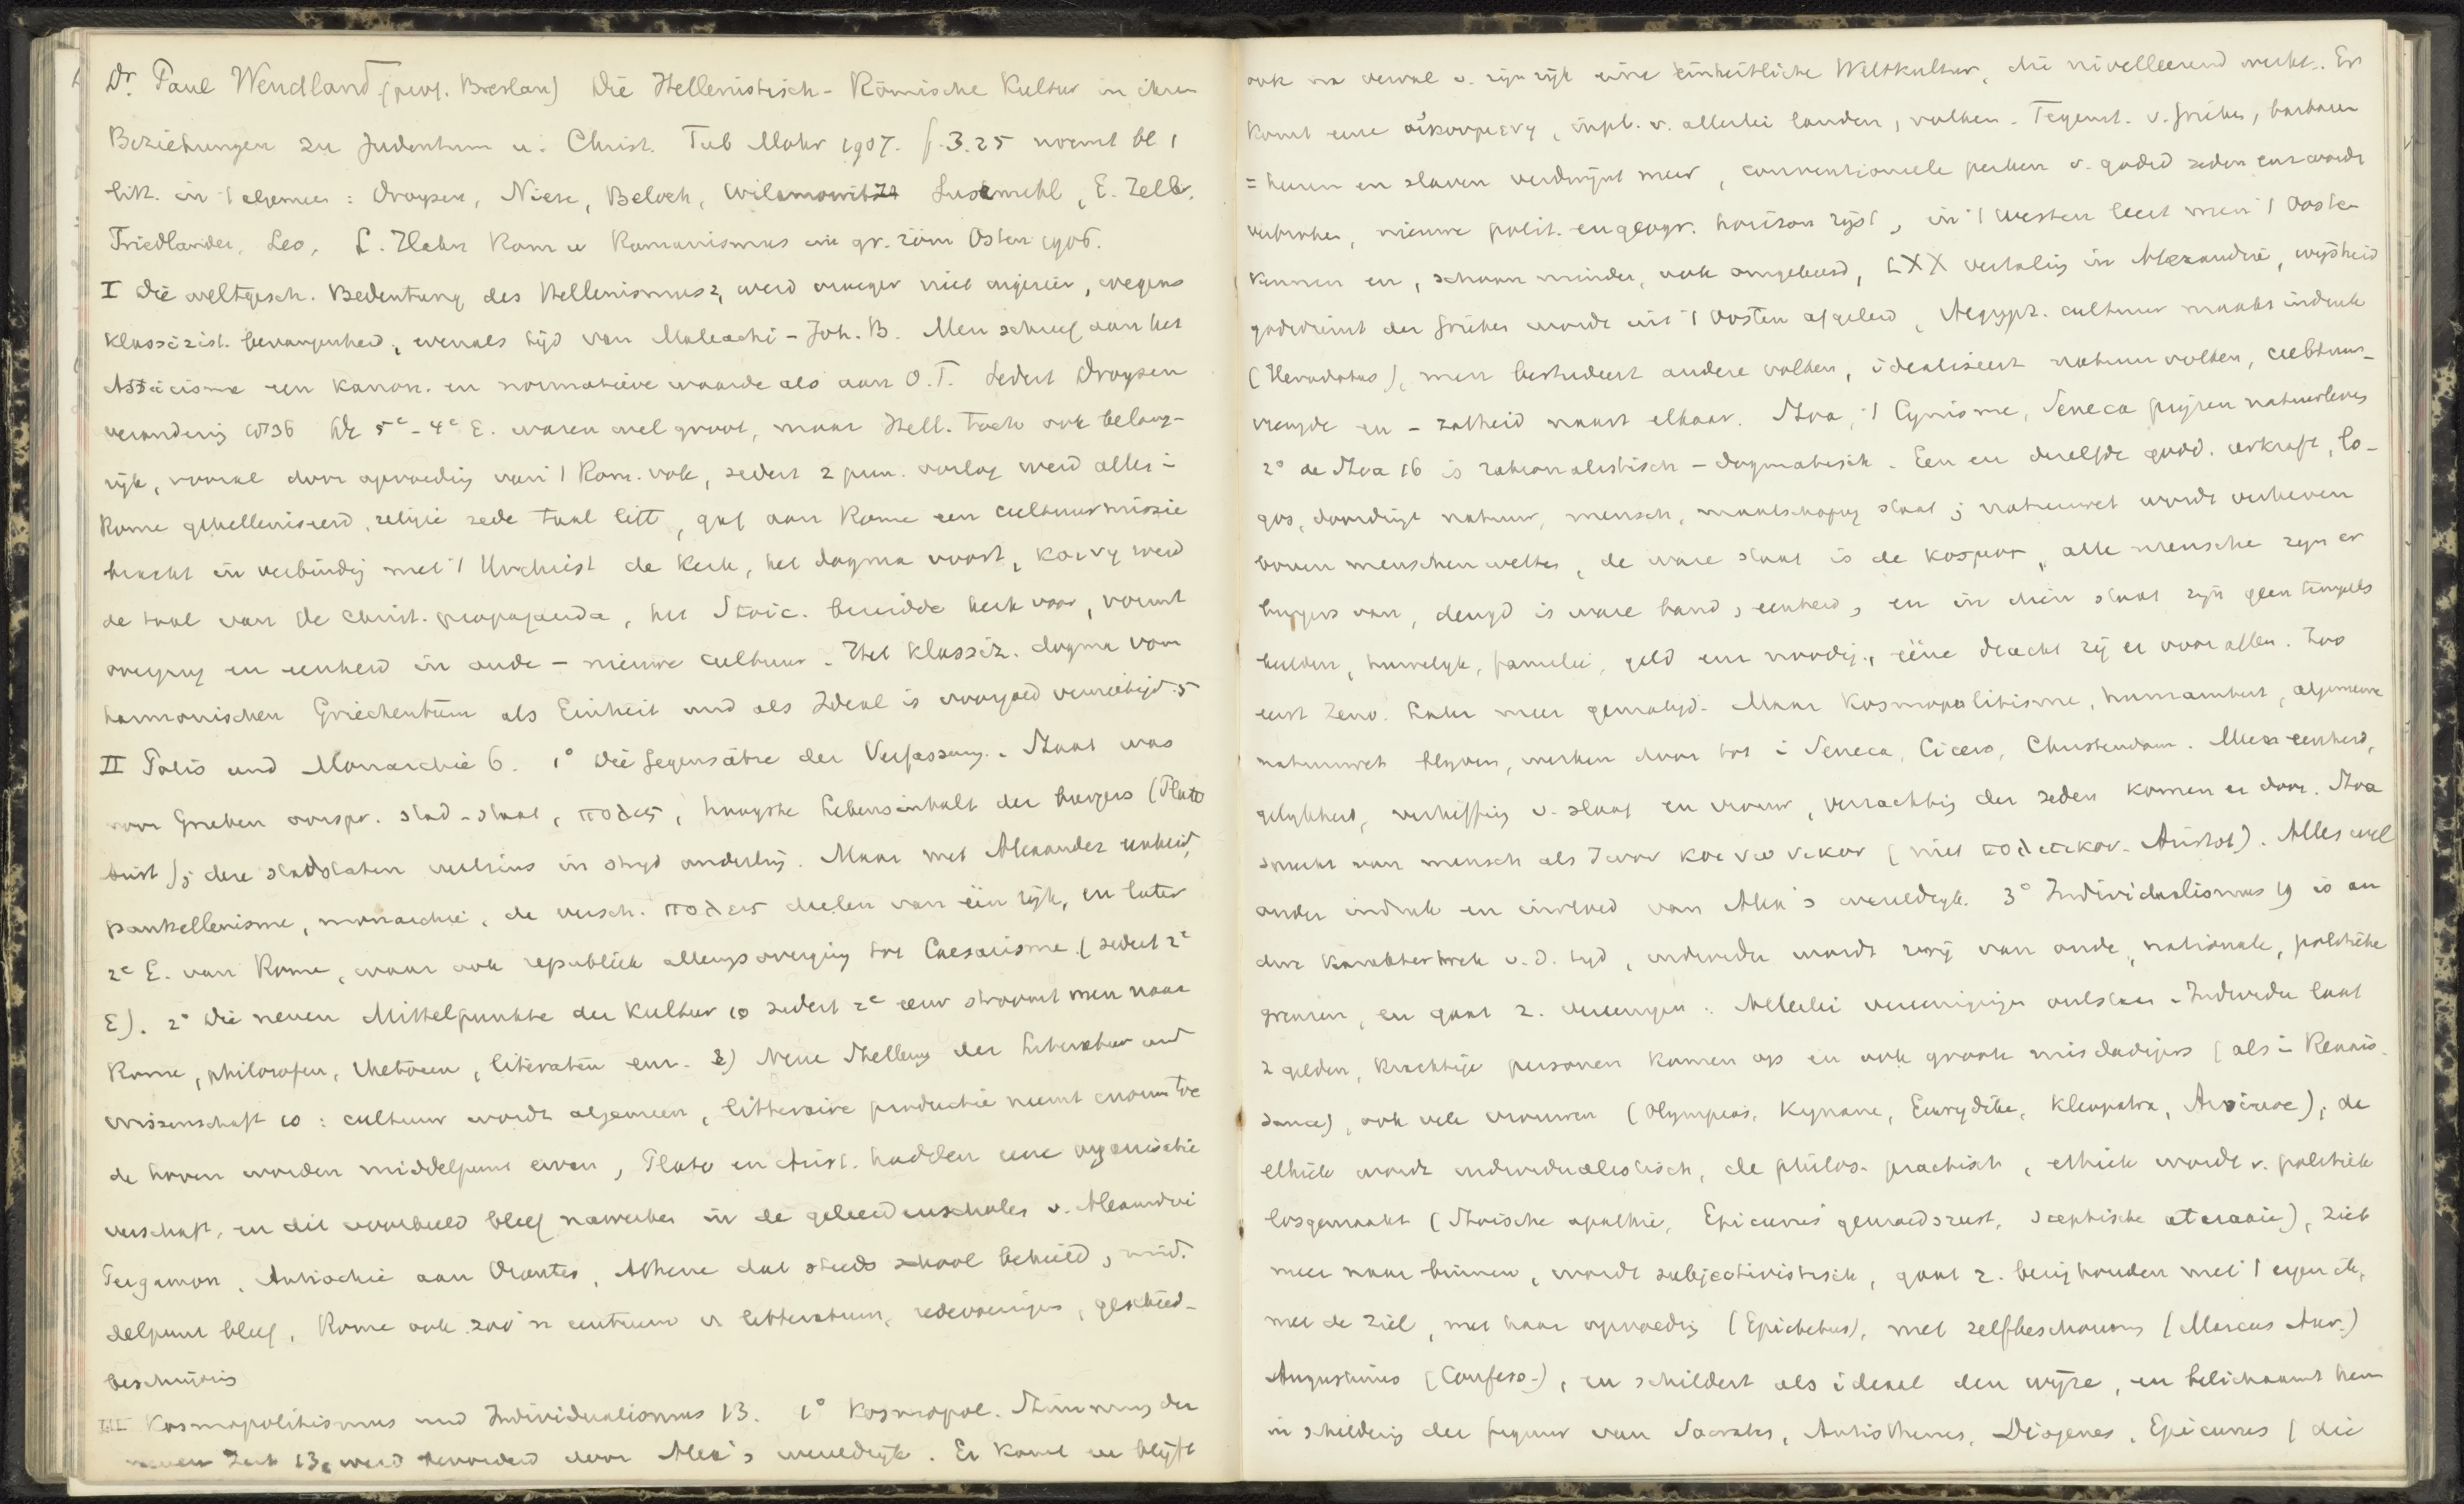 Dr. Paul Wendland (prof. Breslau) Die Hellenistisch-Römische Kultur in ihren
Beziehungen zu Judentum u. Christ. Tub Mohr 1907. f. 3.25 noemt bl 1
litt. in 't algemeen: Droysen, Niese, Beloch, Wilamowitz Susemihl, E. Zeller,
Friedlander, Leo, L. Hahn Rom u Romanismus im gr. röm Osten 1906.
I Die weltgesch. Bedeutung des Hellenismus 2, werd vroeger niet ingezien, wegens
klassizist. bevangenheid, evenals tijd van Maleachi - Joh. B. Men schreef aan het
Atticisme een kanon. en normatieve waarde als aan O.T. Sedert Droysen
verandering 1836 De 5e-4e E. waren wel groot, maar Hell. toch ook belang-
rijk, vooral door opvoeding van 't Rom. volk, sedert 2 pun. oorlog werd alles i
Rome gehelleniseerd, religie zede taal litt, gaf aan Rome een cultuurmissie
bracht in verbinding met 't Urchrist de Kerk, het dogma voort, κοινη werd
de taal van de Christ. propaganda, het Stoic. bereidde kerk voor, vormt
overgang en eenheid in oude - nieuwe cultuur. Het klassiz. dogma vom
harmonischen Griechentum als Einheit und als Ideal is voorgoed vernietigd. 5
II Polis und Monarchie 6. 1° Die Gegensätze der Verfassung. Staat was
voor Grieken oorspr. stad-staat, πολις, hoogste Lebensinhalt der burgers (Plato
Arist); deze stadstaten veelszins in strijd onderling. Maar met Alexander eenheid,
panhellenisme, monarchie, de versch. πολεις deelen van één rijk, en later
2e E. van Rome, waar ook republiek allengs overging tot Caesarisme (sedert 2e
E). 2° Die neuen Mittelpunkte der Kultur 10 sedert 2e eeuw stroomt men naar
Rome, philosofen, rhetoren, literaten enz. 3) Neue Stellung der Literatur und
Wissenschaft 10: cultuur wordt algemeen, litteraire productie neemt enorm toe
de hoven worden middelpunt ervan, Plato en Arist. hadden eene organisatie
verschaft, en dit voorbeeld bleef nawerken in de geleerdenscholen v. Alexandrië
Pergamon, Antiochie aan Orontes, Athene dat steeds school behield, mid-
delpunt bleef, Rome ook zoo'n centrum v litteratuur, redevoeringen, geschied-
beschrijving
III Kosmopolitismus und Individualismus 13. 1° Kosmopol. Stimmung der
neuen Zeit 13, werd bevorderd door Alex's wereldrijk. Er komt en blijft
ook na verval v. zijn rijk eine einheitliche Weltkultur, die nivelleerend werkt. Er
komt eene οικουμενη, inpl. v. allerlei landen, volken. Tegenst. v. Grieken, barbaren
= heeren en slaven verdwijnt meer, conventioneele perken v. godsd zeden enz worde
verbroken, nieuwe polit. en geogr. horizon rijst, in 't Westen leert men 't Oosten
kennen en, schoon minder, ook omgekeerd, LXX vertaling in Alexandrië, wijsheid
godsdienst der Grieken worde uit 't Oosten afgeleid, Aegypt. cultuur maakt indruk
(Herodotus), men bestudeert andere volken, idealiseert natuurvolken, cultuur-
vreugde en - zatheid naast elkaar. Stoa, 't Cynisme, Seneca prijzen natuurleven
2° de Stoa 16 is rationalistisch - dogmatisch. Een en dezelfde godd. oerkraft, lo-
gos, doordringt natuur, mensch, maatschappij staat; natuurwet wordt verheven
boven menschenwetten, de ware staat is de κοσμος, alle mensche zijn er
burgers van, deugd is ware band, eenheid, en in dien staat zijn geen tempels
beelden, huwelijk, familie, geld enz noodig, ééne dracht zij er voor allen. Zoo
eerst Zeno. Later meer gematigd. Maar Kosmopolitisme, humaniteit, algemeene
natuurwet blijven, werken door tot i Seneca, Cicero, Christendom. Meer eenheid,
gelijkheid, verheffing v. slaaf en vrouw, verzachting der zeden komen er door. Stoa
spreekt van mensch als ζωον κοινωνικον (niet πολιτικον. Aristot). Alles wel
onder indruk en invloed van Alex's wereldrijk. 3° Individualismus 19 is an
dere karaktertrek v. d. tijd, individu wordt vrij van oude, nationale, politieke
grenzen, en gaat z. vereenigen: Allerlei vereenigingen ontstaan. Individu laat
z gelden, krachtige personen komen op en ook groote misdadigers (als i Renais-
sance), ook vele vrouwen (Olympias, Kynane, Eurydike, Kleopatra, Arsinoe), de
ethiek wordt individualistisch, de philos. practisch, ethiek wordt v. politiek
losgemaakt (Stoische apathie, Epicurus gemoedsrust, sceptische ataraxie), ziet
meer naar binnen, wordt subjectivistisch, gaat z. bezighouden met 't eigen ik,
met de ziel, met haar opvoeding (Epictetus), met zelfbeschouwing (Marcus Aur.)
Augustinus (Confess.), en schildert als ideaal den wijze, en belichaamt hem
in schildering der figuur van Socrates, Antisthenes, Diogenes, Epicurus (die